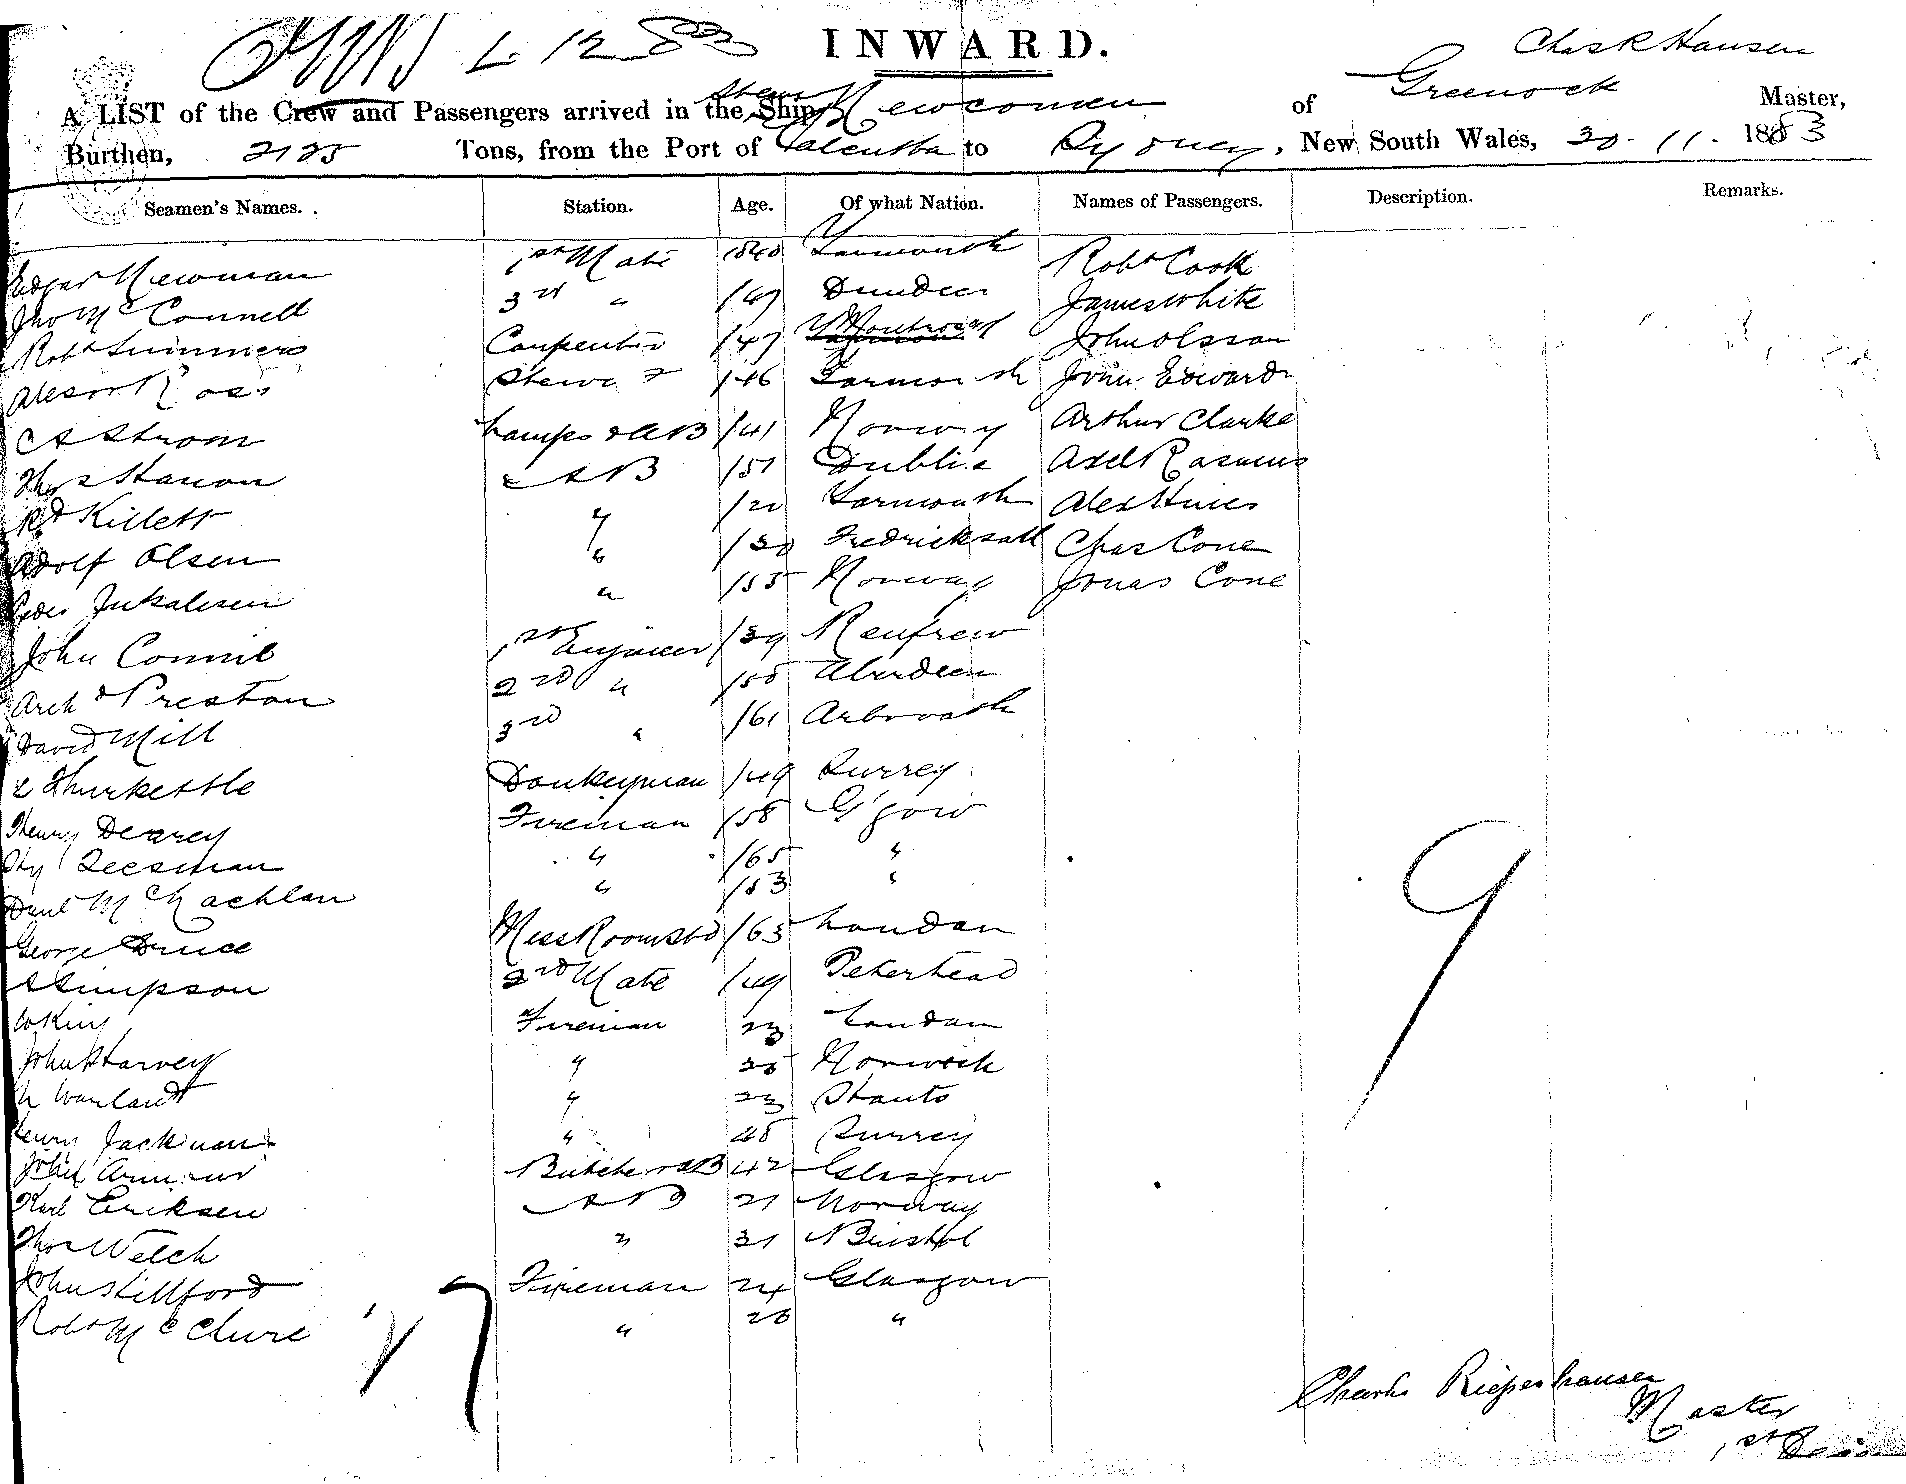 1. 12. 83 INWARD. Chas R Hansen
A LIST of the Crew and Passengers arrived in the Ship Steam Newcomen of Greenock Master,
Burthen, 2125 Tons, from the Port of Calcutta to Sydney, New South Wales, 30. 11. 1883
Seamen's Names. Station. Age. Of what Nation. Names of Passengers. Description. Remarks.
Edgar Newman 1st Mate 1840 Yarmouth Robt Cook
Jno McConnell 3rd " /49 Dundee James White
Robt Summers Carpenter /47 Montrose John Olsson
Ross Steward /46 Yarmouth John Edwards
C A Strom Lamps & AB /41 Norway Arthur Clarke
Thos Hanon AB /51 Dublin Axel Rasmus
Rd Killett " /20 Yarmouth Alex Hines
Adolf Olsen " /30 Fredricksall Chas Cone
Peder " /55 Norway Jonas Cone
John Connil 1st Engineer /39 Renfrew
Archd Preston 2nd " /58 Aberdeen
David Mill 3rd " /61 Arbroath
Thurkettle Donkeyman /49 Surrey
Henry Dearey Fireman /58 G'gow
Hy Leesman " /65 "
Danl McLachlan " /53 "
George Druce Mess Room Std /65 London
A Simpson 2nd Mate /49 Peterhead
W King Fireman 23 London
John Harvey " 25 Norwich
" 23 Hants
Henry Jackman " 48 Surrey
John Armour Butcher & AB 42 Glasgow
Karl Eriksen AB 21 Norway
Thos Welch " 31 Bristol
John Stillford Fireman 24 Glasgow
Robt McClure " 26 "
9
27
Charles Riepenhausen
Master